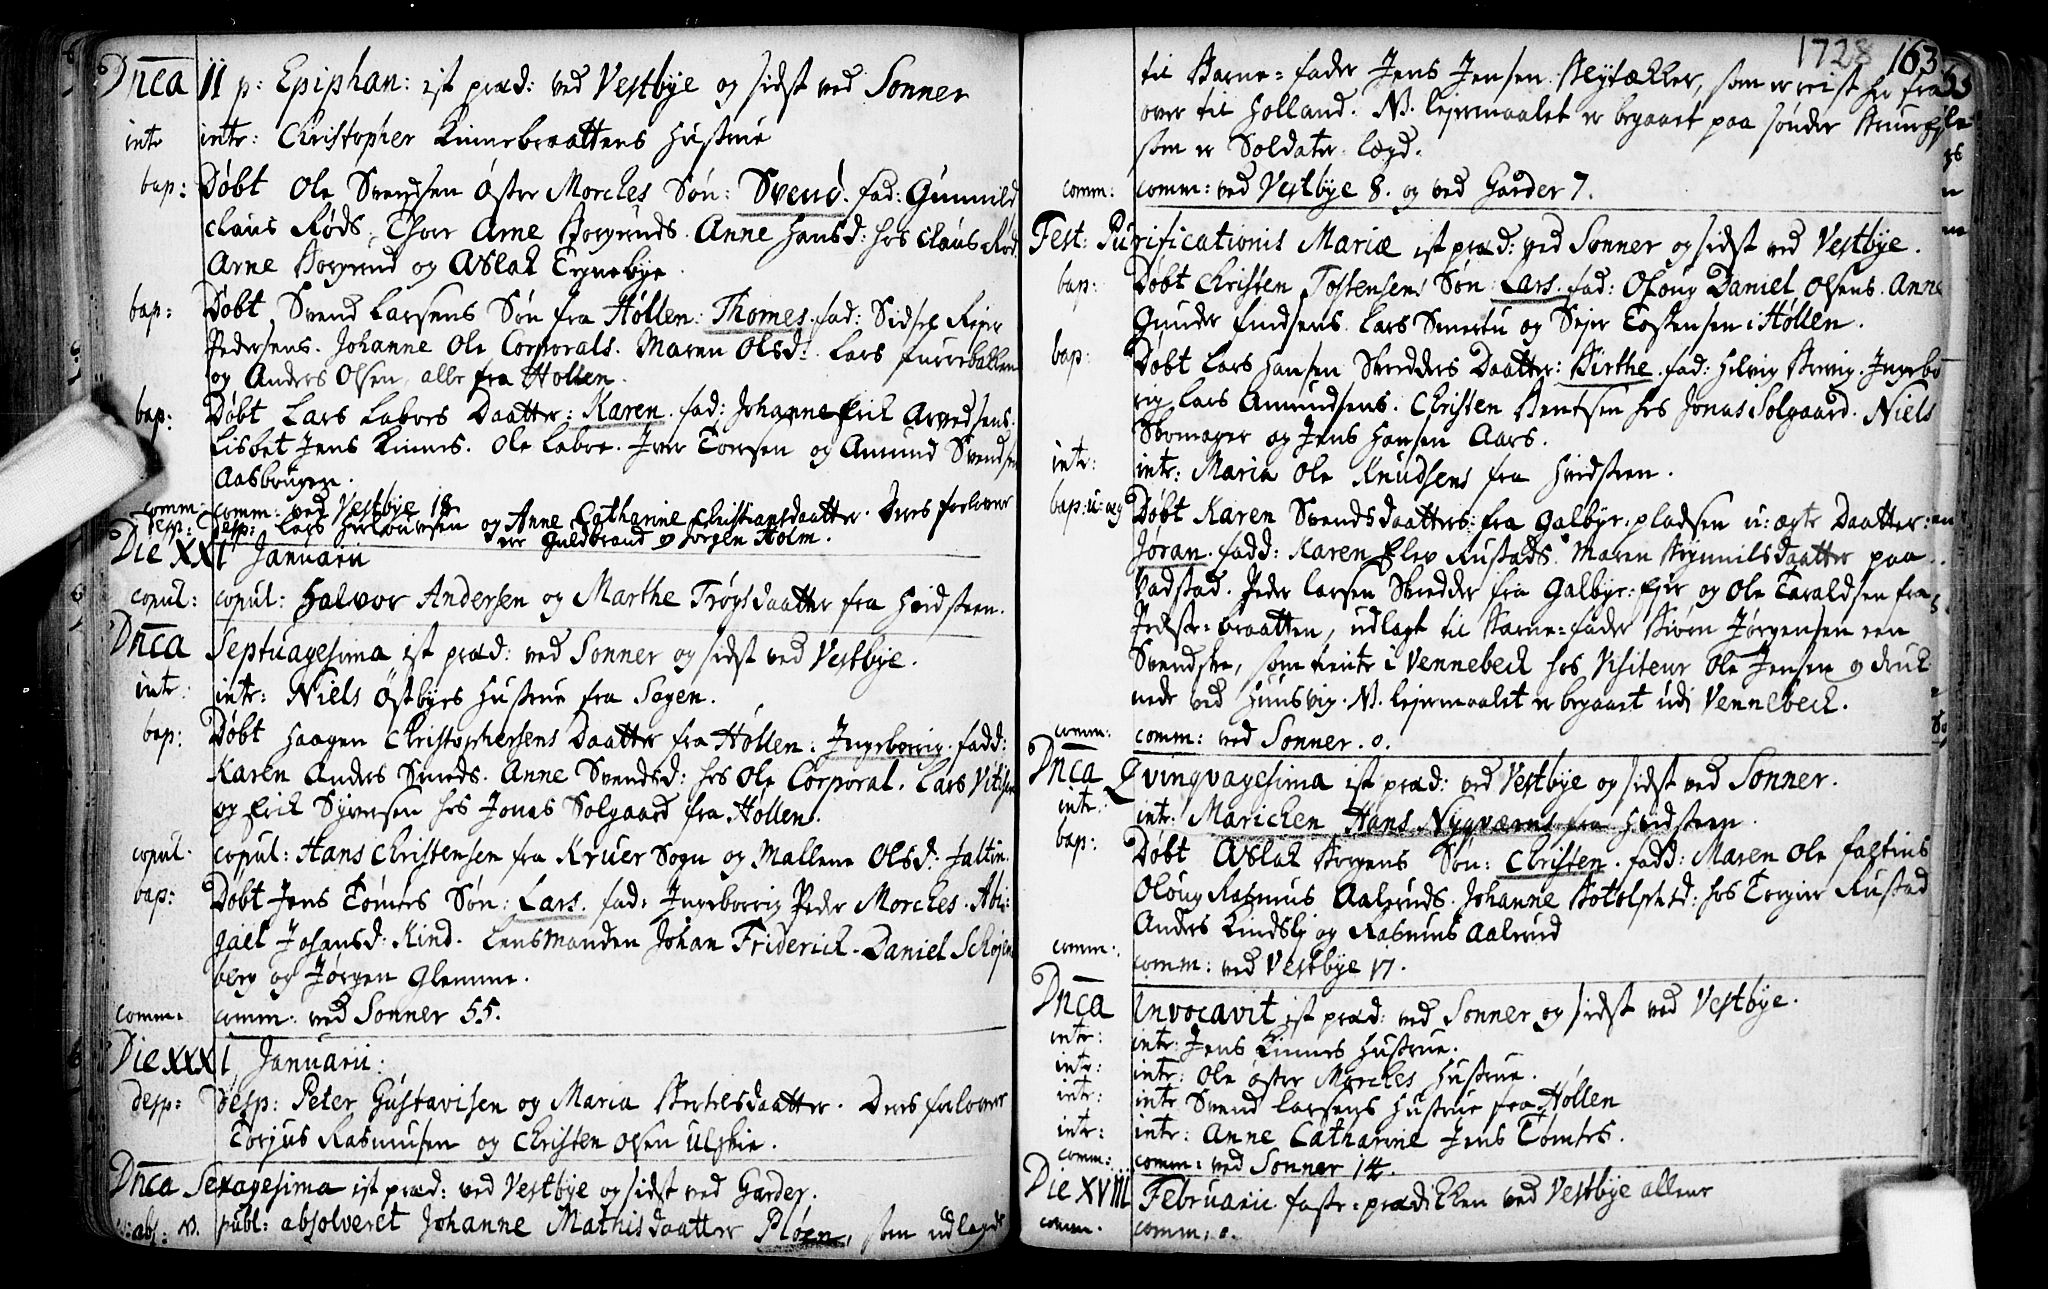 Dnca II p: Epiphan: ist præd: ved Vestbye og sidst ved Sonner
intr intr: Christopher Kinnebraattens Hustrue
bap: Døbt Ole Svendsen Øster Morches Søn: Svend. fad: Gunnild
Claus Røds, Thorr Arne Borgrunds. Anne Hansd: hos Claus Rød.
Arne Borgrud og Aslak Tegnebye.
bap: Døbt Svend Larsens Søn fra Høllen: Thomes. fad: Sidsel Rejer
Pedersens. Johanne Ole Corporals. Maren Olsd: Lars furreballen
og Anders Olsen, alle fra Høllen.
bap: Døbt Lars Labors Daatter: Karen. fad: Johanne Erick Arvedsens.
Lisbet Jens Kinnes. Ole Labor. Iver Torsen og Amund Svendsen
Aasbrugen.
comm: comm: ved Vestbye 18
desp: desp: Lars og Anne Catharine Christiansdaatter. Deres forlover
er Guldbrand og Jørgen Holm.
Die XXI Januarii
copul: copul: Halvor Andersen og Marthe Trøgsdaatter fra Hvidsteen.
Dnca Septuagesima ist præd: ved Sonner og sidst ved Vestbye.
intr: intr: Niels Østbyes Hustrue fra Sogen.
bap: Døbt Haagen Christophersens Daatter fra Høllen: Ingeborrig. fadd:
Karen Anders Smeds. Anne Svendsd: hos Ole Corporal. Lars Vitisen
og Erick Syversen hos Jonas Solgaard fra Høllen.
copul: copul: Hans Christensen fra Kruer Sogn og Mallene Olsd: Jaltin.
bap: Døbt Jens Tømtes Søn: Lars. fad: Ingeborrig Peder Morches. Abi-
gael Johansd: Kind. Lensmanden Johan Friderich. Daniel Schøjen
berg og Jørgen Glemme.
comm. comm. ved Sonner 55.
Die XXXI Januarii:
desp: desp: Peter Gustavisen og Maria Bertelsdaatter. Deres forlover
Torjus Rasmusen og Christen Olsen Ulskie.
Dnca Sexagesima ist præd: ved Vestbye og sidst ved Garder.
abs: N. publ: absolveret Johanne Mathisdaatter Pløen, som udlagde
1728 163
til Barne-fader Jens Jensen Bleytækker, som er reist her fra
over til Holland. N. lejermaalet er begaaet paa sønder
som er Soldater-legd.
comm: comm: ved Vestbye 8. og ved Garder 7.
Fest: Purificationis Mariæ ist præd: ved Sonner og sidst ved Vestbye.
bap: Døbt Christen Tostensens Søn: Lars. fad: Oloug Daniel Olsens. Anne
Gunder Knudsens. Lars Smertu og Sejer Tostensen i Høllen.
bap: Døbt Lars Hansen Skredders Daatter: Birthe. fad: Helvig Brevig. Ingebo
rig Lars Amundsens. Christen Bentsen hos Jonas Solgaard. Niels
Skomager og Jens Hansen Aars.
intr: intr: Maria Ole Knudsens fra Hvidsteen.
bap: u: æg Døbt Karen Svendsdaatters fra Galbye-pladsen u: ægte Daatter:
Jøran. fadd: Karen Elev Rustads. Maren Brynnilsdaatter paa
Vadstad. Peder Larsen Skredder fra Galbye-Ejer og Ole Taraldsen fra
-braatten, udlagt til Barne-fader Biørn Jørgensen een
Svendske, som tiente i Vennebeck hos Visiteur Ole Jensen og druk
nede ved Hunsvig. N. lejermaalet er begaaet udi Vennebeck.
comm: comm: ved Sonner. 0.
Dnca Qvinqvagesima ist præd: ved Vestbye og sidst ved Sonner.
intr: intr: Marichen Hans Nygværns fra Hvidsteen.
bap: Døbt Aslak Borgens Søn: Christen. fadd: Maren Ole faltins
Oloug Rasmus Aaleruds. Johanne Botolphsd: hos Torgier Rustad
Anders Lindsly og Rasmus Aalerud
comm: comm: ved Vestbye 17.
Dnca Invocavit ist præd: ved Sonner og sidst ved Vestbye.
intr: intr: Jens Kinnes Hustrue.
intr: intr: Ole øster Morches Hustrue.
intr: intr Svend Larsens Hustrue fra Høllen
intr: intr: Anne Catharine Jens Tømtes.
comm: comm: ved Sonner 14.
Die XVIII Februarii faste-prædicken ved Vestbye allene
comm. comm. 0.